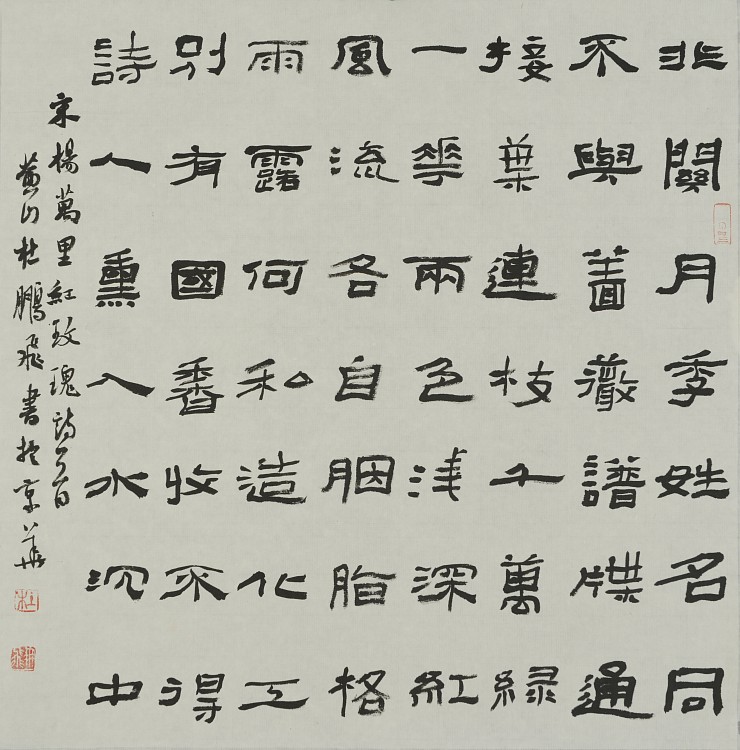 非關月季姓名同
不與薔薇譜牒通
接葉連枝千萬緑
一華兩色淺深紅
風流各自胭脂格
雨露何私造化工
別有國香收不得
詩人熏入水沉中
宋楊萬里紅玫瑰詩一首
黄山杜鵬飛書於京華
杜